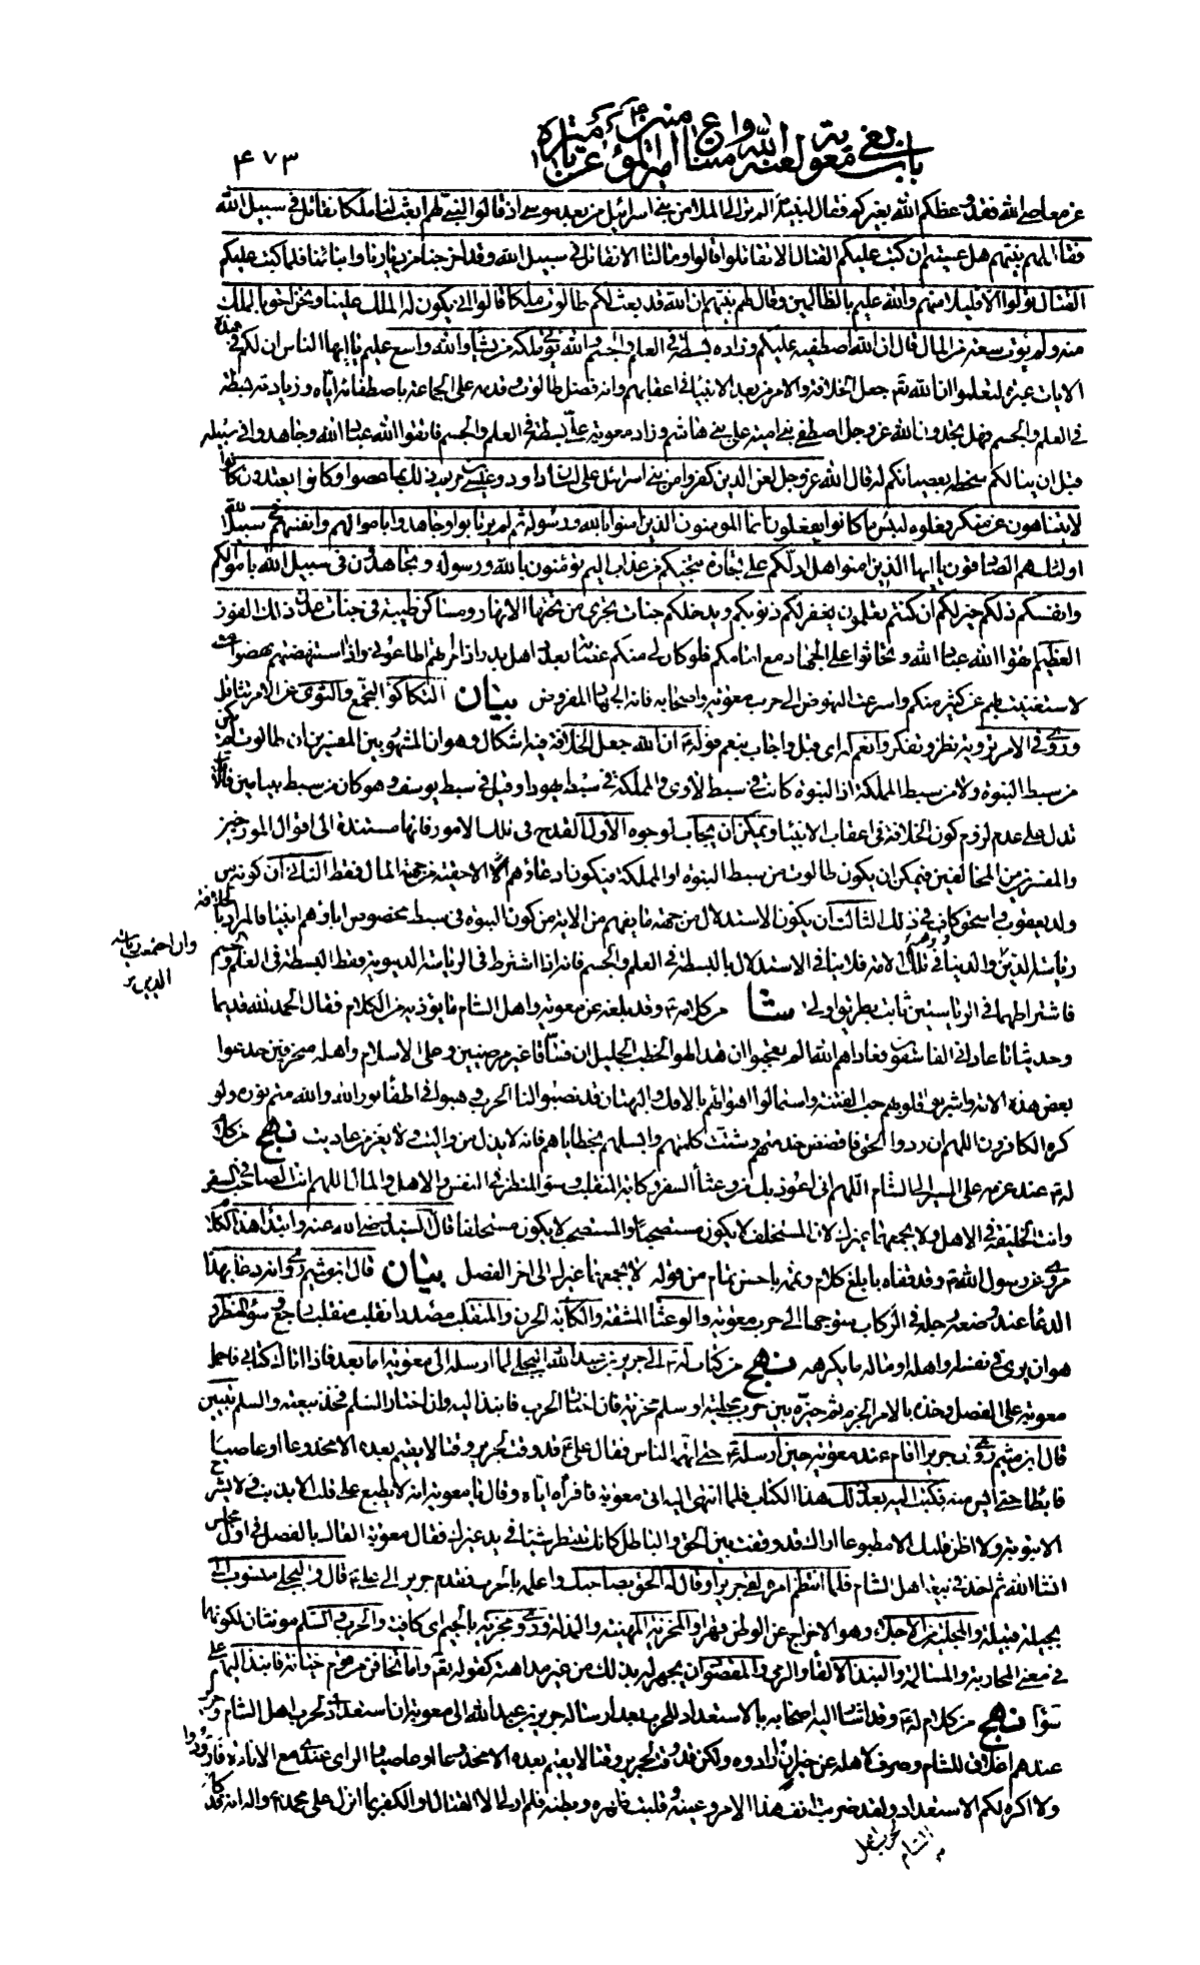 باب بغي معوية لعنه الله وامتناع امير المؤمنين
٤٧٣
عن معاصي الله فقد وعظكم الله بغيركم فقال لنبيه الم تر الى الملا من بني اسرائيل من بعد موسى اذ قالوا لنبي لهم ابعث لنا ملكا نقاتل في سبيل الله
فقال لهم نبيهم هل عسيتم ان كتب عليكم القتال الا تقاتلوا قالوا وما لنا الا نقاتل في سبيل الله وقد اخرجنا من ديارنا وابنائنا فلما كتب عليهم
القتال تولوا الا قليلا منهم والله عليم بالظالمين وقال لهم نبيهم ان الله قد بعث لكم طالوت ملكا قالوا انى يكون له الملك علينا ونحن احق بالملك
منه ولم يؤت سعة من المال قال ان الله اصطفيه عليكم وزاده بسطة في العلم والجسم والله يؤتي ملكه من يشاء والله واسع عليم يا ايها الناس ان لكم في هذه
الايات عبرة لتعلموا ان الله تعم جعل الخلافة والامر من بعد الانبياء في اعقابهم وانه فضل طالوت وقدمه على الجماعة باصطفائه اياه وزيادته بسطة
في العلم والجسم فهل تجدون الله عز وجل اصطفى بني امية على بني هاشم وزاد معوية علي بسطة في العلم والجسم فاتقوا الله عباد الله وجاهدوا في سبيله
قبل ان ينالكم سخطه بعصيانكم له قال الله عز وجل لعن الذين كفروا من بني اسرائيل على لسان داود وعيسى بن مريم ذلك بما عصوا وكانوا يعتدون كانوا
لا يتناهون عن منكر فعلوه لبئس ما كانوا يفعلون انما المومنون الذين امنوا بالله ورسوله ثم لم يرتابوا وجاهدوا باموالهم وانفسهم في سبيل الله
اولئك هم الصادقون يا ايها الذين امنوا هل ادلكم على تجارة تنجيكم من عذاب اليم تؤمنون بالله ورسوله وتجاهدون في سبيل الله باموالكم
وانفسكم ذلكم خير لكم ان كنتم تعلمون يغفر لكم ذنوبكم ويدخلكم جنات تجري من تحتها الانهار ومساكن طيبة في جنات عدن ذلك الفوز
العظيم اتقوا الله عباد الله وتحاثوا على الجهاد مع امامكم فلو كان لي منكم عصابة بعدد اهل بدر اذا امرتهم اطاعوني واذا استنهضتهم نهضوا معي
لاستغنيت بهم عن كثير منكم واسرعت النهوض الى حرب معوية واصحابه فانه الجهاد المفروض بيان التكاكؤ التجمع والتوى عن الامر تثاقل
وروى في الامر تروية نظر وتفكر وانعم له اى قبل واجاب بنعم قوله ان الله جعل الخلافة فيه اشكال وهو ان المشهور بين المفسرين ان طالوت لم يكن
من سبط النبوة ولا من سبط المملكة اذ النبوة كانت في سبط لاوى والمملكة في سبط يهودا وقيل في سبط يوسف وهو كان من سبط بنيامين فالاية
تدل على عدم لزوم كون الخلافة في اعقاب الانبياء ويمكن ان يجاب بوجوه الاول القدح في تلك الامور فانها مستندة الى اقوال المورخين
والمفسرين من المخالفين فيمكن ان يكون طالوت من سبط النبوة او المملكة فيكون ادعاؤهم الاحقية من جهة المال فقط الثاني ان كونه من
ولد يعقوب واسحق كاف في ذلك الثالث ان يكون الاستدلال من جهة ما يفهم من الاية من كون النبوة في سبط مخصوص اباؤهم انبياء فالمراد بالخلافة
رياسة الدين والدنيا وفي تلك الامة فلا ينافي الاستدلال بالبسطة في العلم والجسم فانه اذا اشترط في الرياسة الدنيوية فقط البسطة في العلم والجسم
وان اجتمعت رياسة الدين
فاشتراطهما في الرياستين ثابت بطريق اولى شا من كلامه وقد بلغه عن معوية واهل الشام ما يؤذيه من الكلام فقال الحمد لله قديما
وحديثا ما عاداني الفاسقون فعاداهم الله الم تعجبوا ان هذا لهو الخطب الجليل ان فساقا غير مرضيين وعلى الاسلام واهله منحرفين خدعوا
بعض هذه الامة واشربوا قلوبهم حب الفتنة واستمالوا اهوائهم بالافك والبهتان قد نصبوا لنا الحرب وهبوا في اطفاء نور الله والله متم نوره ولو
كره الكافرون اللهم ان ردوا الحق فافضض خدمتهم وشتت كلمتهم وابسلهم بخطاياهم فانه لا يذل من واليت ولا يعز من عاديت نهج من كلام
له عند عزمه على السير الى الشام اللهم اني اعوذ بك من وعثاء السفر وكابة المنقلب وسوء المنظر في النفس والاهل والمال اللهم انت الصاحب في السفر
وانت الخليفة في الاهل ولا يجمعهما غيرك لان المستخلف لا يكون مستصحبا والمستصحب لا يكون مستخلفا قال السيد رضي الله عنه وابتداء هذا الكلام
مروي عن رسول الله وقد قفاه بابلغ كلام وتممه باحسن تمام من قوله لا يجمعهما غيرك الى اخر الفصل بيان قال ابن ميثم روى انه دعا بهذا
الدعاء عند وضعه رجله في الركاب متوجها الى حرب معوية والوعثاء المشقة والكابة الحزن والمنقلب مصدر انقلب منقلبا اى رجع وسوء المنظر
هو ان يرى في نفسه او اهله او ماله ما يكرهه نهج من كتاب له الى جرير بن عبد الله البجلي لما ارسله الى معوية اما بعد فاذا اتاك كتابي فاحمل
معوية على الفصل وخذه بالامر الجزم ثم خيره بين حرب مجلية او سلم مخزية فان اختار الحرب فانبذ اليه وان اختار السلم فخذ بيعته والسلم تبيين
قال ابن ميثم روى ان جريرا اقام عند معوية حين ارسله حتى اتهمه الناس فقال على قد وقت لجرير وقتا لا يقيم بعده الا مخدوعا او عاصيا
فابطا حتى ايس منه فكتب اليه بعد ذلك هذا الكتاب فلما انتهى اليه اتى معوية فاقرأه اياه وقال يا معوية انه لا يطبع على قلب الا بذنب ولا يشرح
الا بتوبة ولا اظن قلبك الا مطبوعا اراك قد وقفت بين الحق والباطل كانك تنتظر شيئا في يد غيرك فقال معوية القاك بالفصل في اول مجلس
انشاء الله ثم اخذ في بيعة اهل الشام فلما انتظم امره لقي جريرا وقال له الحق بصاحبك واعلمه بالحرب فقدم جرير الى على قال والبجلي منسوب الى
بجيلة قبيلة والمجلية من الاجلاء وهو الاخراج عن الوطن قهرا والمخزية المهينة والمذلة وروى مجزية بالجيم اى كافية والحرب والسلم مونثان لكونهما
في معنى المحاربة والمسالمة والنبذ الالقاء والرمي والمقصود ان يجهر له بذلك من غير مداهنة كقوله تعم واما تخافن من قوم خيانة فانبذ اليهم على
سواء نهج من كلام له وقد اشار اليه اصحابه بالاستعداد للحرب بعد ارساله جرير بن عبد الله الى معوية ان استعدادي لحرب اهل الشام وجرير
عندهم اغلاق للشام وصرف لاهله عن خير ان ارادوه ولكن قد وقت لجرير وقتا لا يقيم بعده الا مخدوعا او عاصيا والراى عندى مع الاناة فارودوا
ولا اكره لكم الاستعداد ولقد ضربت انف هذا الامر وعينه وقلبت ظهره وبطنه فلم ار لي الا القتال او الكفر بما انزل على محمد واله انه قد كان